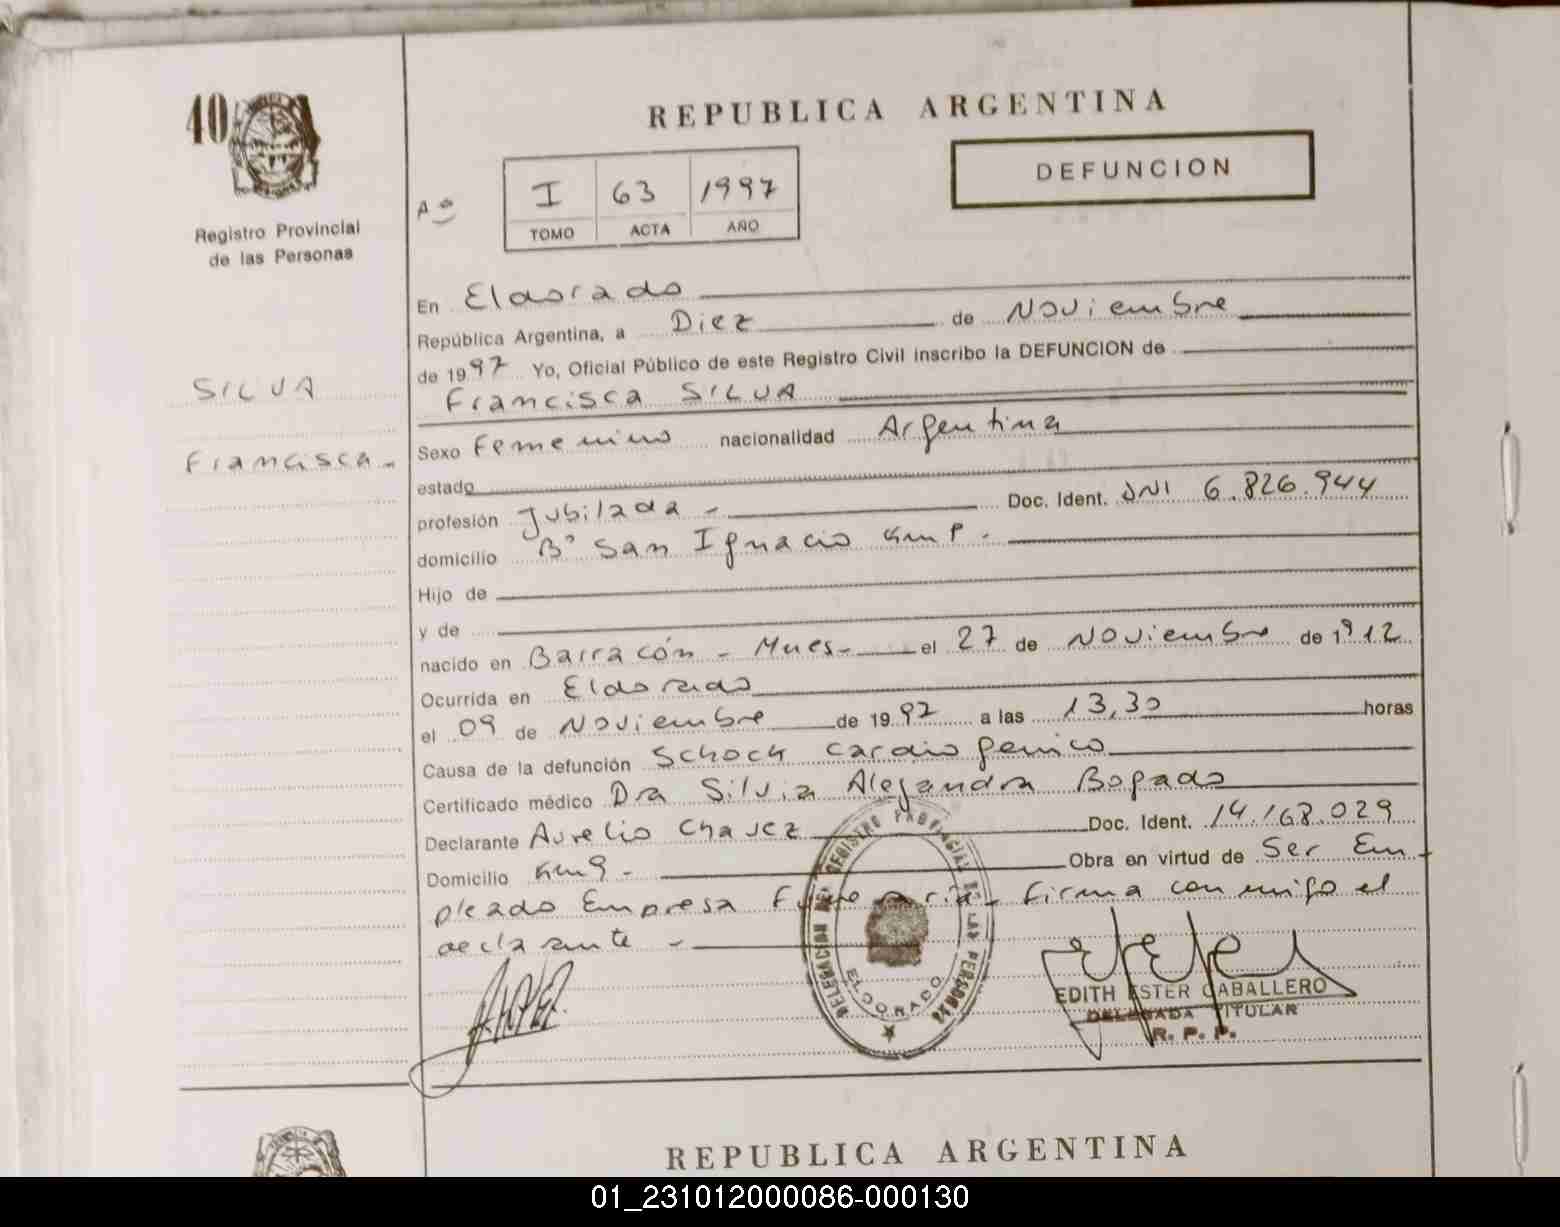 40
Registro Provincial
de las Personas
REPUBLICA ARGENTINA
DEFUNCION
Aº
I 63 1997
TOMO ACTA AÑO
En Eldorado
República Argentina, a Diez de Noviembre
de 1997 Yo, Oficial Público de este Registro Civil inscribo la DEFUNCION de
Francisca SILVA
SILVA
Francisca.-
Sexo Femenino nacionalidad Argentina
estado
profesión Jubilada - Doc. Ident. DNI 6.826.944
domicilio Bº San Ignacio Km 9.-
Hijo de
y de
nacido en Barracón - Mnes- el 27 de Noviembre de 1912
Ocurrida en Eldorado
el 09 de Noviembre de 1997 a las 13,30 horas
Causa de la defunción Schock cardiogenico
Certificado médico Dra Silvia Alejandra Bogado
Declarante Aurelio Chavez Doc. Ident. 14.168.029
Domicilio Km 9 - Obra en virtud de Ser Em-
pleado Empresa Funeraria - Firma conmigo el
declarante -
DELEGACION DEL REGISTRO PROVINCIAL DE LAS PERSONAS
ELDORADO
EDITH ESTER CABALLERO
DELEGADA TITULAR
R. P. P.
REPUBLICA ARGENTINA
01_231012000086-000130